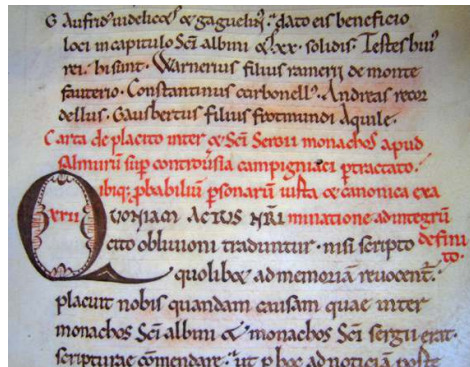 G Aufridus uidelic& & gaguelin9. dato eis beneficio
loci in capitulo Sc̄i albini & xx. solidis. Testes hui9
rei. hi sunt. Warnerius filius ramerii de monte
fauterio. Constantinus carbonell9. Andreas recor
dellus. Gausbertus filius frotmundi Aquile.
Carta de placito inter & Sc̄i Sergii monachos apud
salmurū sup controu̾sia campigniaci ptractato.
ibiq; pbabiliū psonarū iusta & canonica exa
xvii QUONIAM ACTUS NR̄I minatione ad integrū
cito obliuioni traduntur. nisi scripto defini
to.
quolib& ad memoriā reuocent᷑.
placuit nobis quandam causam quae inter
monachos Sc̄i albini & monachos Sc̄i sergii erat.
scripturae cōmendare. ut p hoc ad noticiā poste